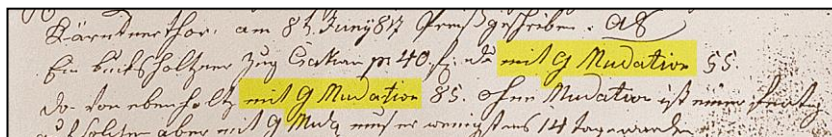 Kärntnerthor. am 8t. Juny 817 Preiß geschriben. AS
Ein buchsholtzner Zug Csakan pr 40 f. do mit 9 Mudation 55.
do. von ebenholtz mit 9 Mudation 85. ohne Mudation ist einer fertig
auf solchen aber mit 9 Muda muß er wenigstens 14 tage warten